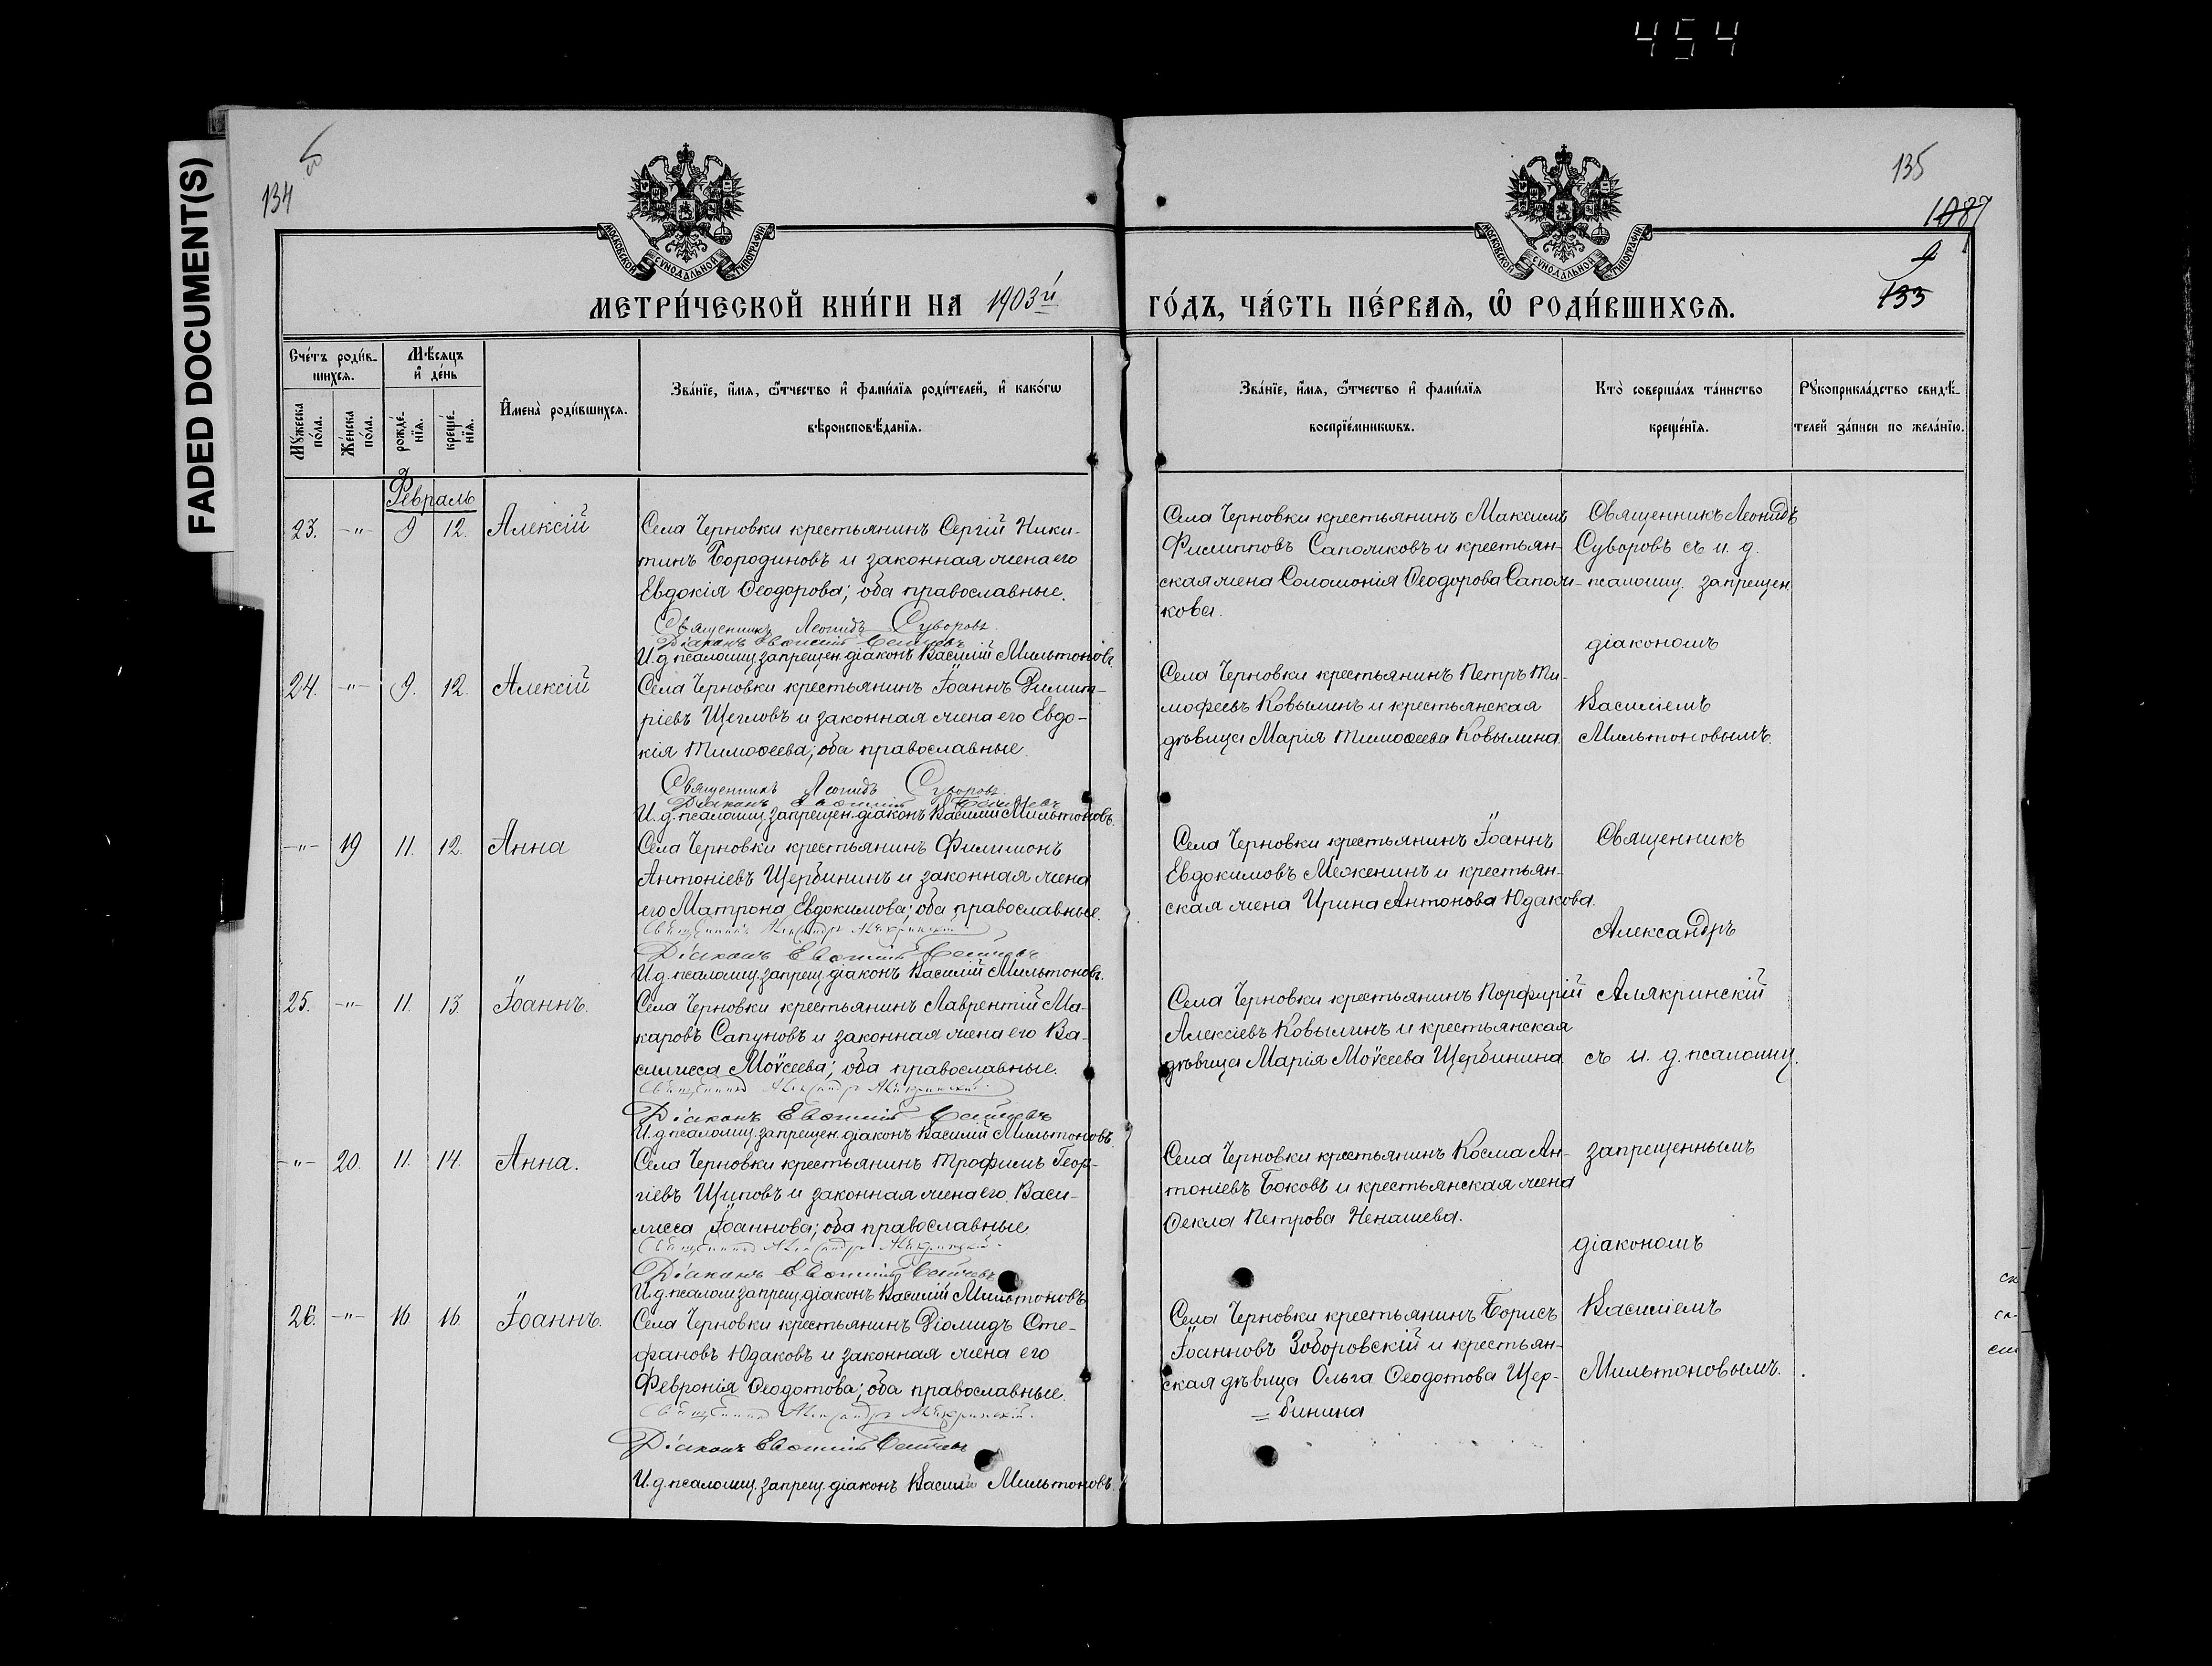 454
FADED DOCUMENT(S)
134
135
1087
133
МОСКОВСКОЙ СУНОДАЛЬНОЙ ТИПОГРАФІИ
МОСКОВСКОЙ СУНОДАЛЬНОЙ ТИПОГРАФІИ
МЕТРИ́ЧЕСКОЙ КНИ́ГИ НА 1903й
ГО́ДЪ, ЧА́СТЬ ПЕ́РВАЯ, Ѡ҆ РОДИ́ВШИХСЯ.
Сче́тъ роди́в-
шихся.
Мꙋжеска по́ла.
Же́нска по́ла.
Мѣ́сяцъ и҆ де́нь
рожде́-
нїя.
креще́-
нїя.
И҆мена̀ роди́вшихся.
Зва́нїе, и҆́мя, ѻ҆́тчество и҆ фами́лїя роди́телей, и҆ како́гѡ
вѣроисповѣ́данїя.
Зва́нїе, и҆́мя, ѻ҆́тчество и҆ фами́лїя
воспрїе́мникѡвъ.
Кто̀ соверша́лъ та́инство
креще́нїя.
Рꙋкоприкла́дство свидѣ́-
телей за́писи по жела́нїю.
Февраль
23. -"- 9 12. Алексій
Села Черновки крестьянинъ Сергій Ники-
тинъ Бородиновъ и законная жена его
Евдокія Ѳеодорова; оба православные.
Священникъ Леонидъ Суворовъ
Діаконъ Евѳимій
И. д. псаломщ. запрещен. діаконъ Василій Мильтоновъ.
Села Черновки крестьянинъ Максимъ
Филипповъ Сапожковъ и крестьян-
ская жена Соломонія Ѳеодорова Сапож-
кова.
Священникъ Леонидъ
Суворовъ съ и. д.
псаломщ. запрещен.
діакономъ
Василіемъ
Мильтоновымъ.
24. -"- 9. 12. Алексій
Села Черновки крестьянинъ Іоаннъ Димит-
ріевъ Щегловъ и законная жена его Евдо-
кія Тимоѳеева; оба православные.
Священникъ Леонидъ Суворовъ
Діаконъ Евѳимій
И. д. псаломщ. запрещен. діаконъ Василій Мильтоновъ.
Села Черновки крестьянинъ Петръ Ти-
мофеевъ Ковылинъ и крестьянская
дѣвица Марія Тимоѳеева Ковылина.
-"- 19 11. 12. Анна
Села Черновки крестьянинъ Филимонъ
Антоніевъ Щербининъ и законная жена
его Матрона Евдокимова; оба православные.
Священникъ Александръ Алякринскій
Діаконъ Евѳимій
И. д. псаломщ. запрещ. діаконъ Василій Мильтоновъ.
Села Черновки крестьянинъ Іоаннъ
Евдокимовъ Меженинъ и крестьян-
ская жена Ирина Антонова Юдакова.
Священникъ
Александръ
Алякринскій
съ и. д. псаломщ.
запрещеннымъ
діакономъ
Василіемъ
Мильтоновымъ.
25. -"- 11. 13. Іоаннъ.
Села Черновки крестьянинъ Лаврентій Ма-
каровъ Сапуновъ и законная жена его Ва-
силисса Моѵсеева; оба православные.
Священникъ Александръ Алякринскій
Діаконъ Евѳимій
И. д. псаломщ. запрещен. діаконъ Василій Мильтоновъ.
Села Черновки крестьянинъ Порфирій
Алексіевъ Ковылинъ и крестьянская
дѣвица Марія Моѵсеева Щербинина.
-"- 20. 11. 14. Анна.
Села Черновки крестьянинъ Трофимъ Геор-
гіевъ Щиповъ и законная жена его Васи-
лисса Іоаннова; оба православные.
Священникъ Александръ Алякринскій
Діаконъ Евѳимій
И. д. псалом. запрещ. діаконъ Василій Мильтоновъ.
Села Черновки крестьянинъ Косма Ан-
тоніевъ Боковъ и крестьянская жена
Ѳекла Петрова Ненашева.
26. -"- 16 16. Іоаннъ.
Села Черновки крестьянинъ Діомидъ Сте-
фановъ Юдаковъ и законная жена его
Февронія Ѳеодотова; оба православные.
Священникъ Александръ Алякринскій
Діаконъ Евѳимій
И. д. псаломщ. запрещ. діаконъ Василій Мильтоновъ.
Села Черновки крестьянинъ Борисъ
Іоанновъ Зоборовскій и крестьян-
ская дѣвица Ольга Ѳеодотова Щер-
=бинина